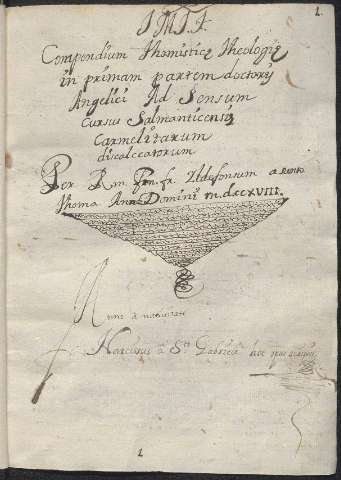 1.
J. M. J. J.
Compendium Thomisticę Theologię
in primam partem doctoris
Angelici Ad Sensum
Cursus Salmanticensis
Carmelitarum
discalceatorum
Per Rm. Pm. fr. Ildefonsum a
Thoma Anno Domini m.dccXVIII.
a Sto Gabriele hoc
1